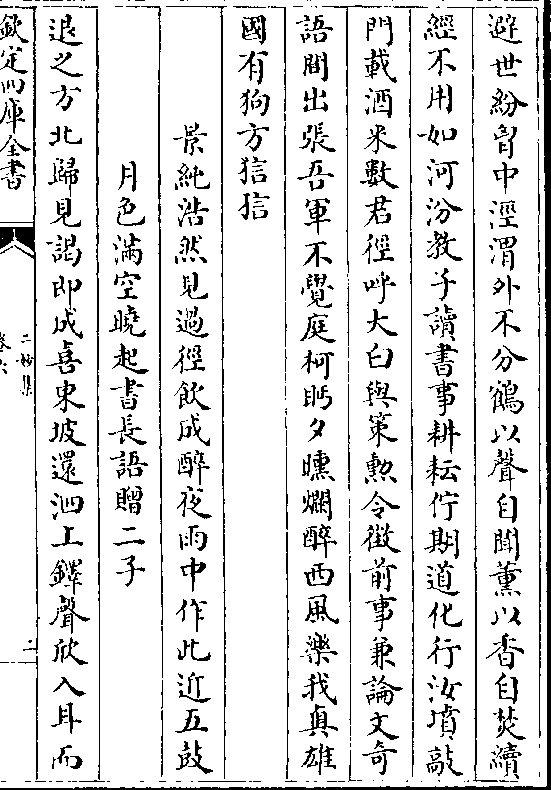 避世紛胷中涇渭外不分鶴以聲自聞薰以香自焚續
經不用如河汾教子讀書事耕耘佇期道化行汝墳敲
門載酒來數君徑呼大白與策勲令徴前事兼論文奇
語間出張吾軍不覺庭柯眄夕曛爛醉西風樂我真雄
國有狗方狺狺
景純浩然見過徑飲成醉夜雨中作此近五鼓
月色滿空曉起書長語贈二子
退之方北歸見謁即成喜東坡還泗上鐸聲欣入耳而
欽定四庫全書
二妙集
卷
二